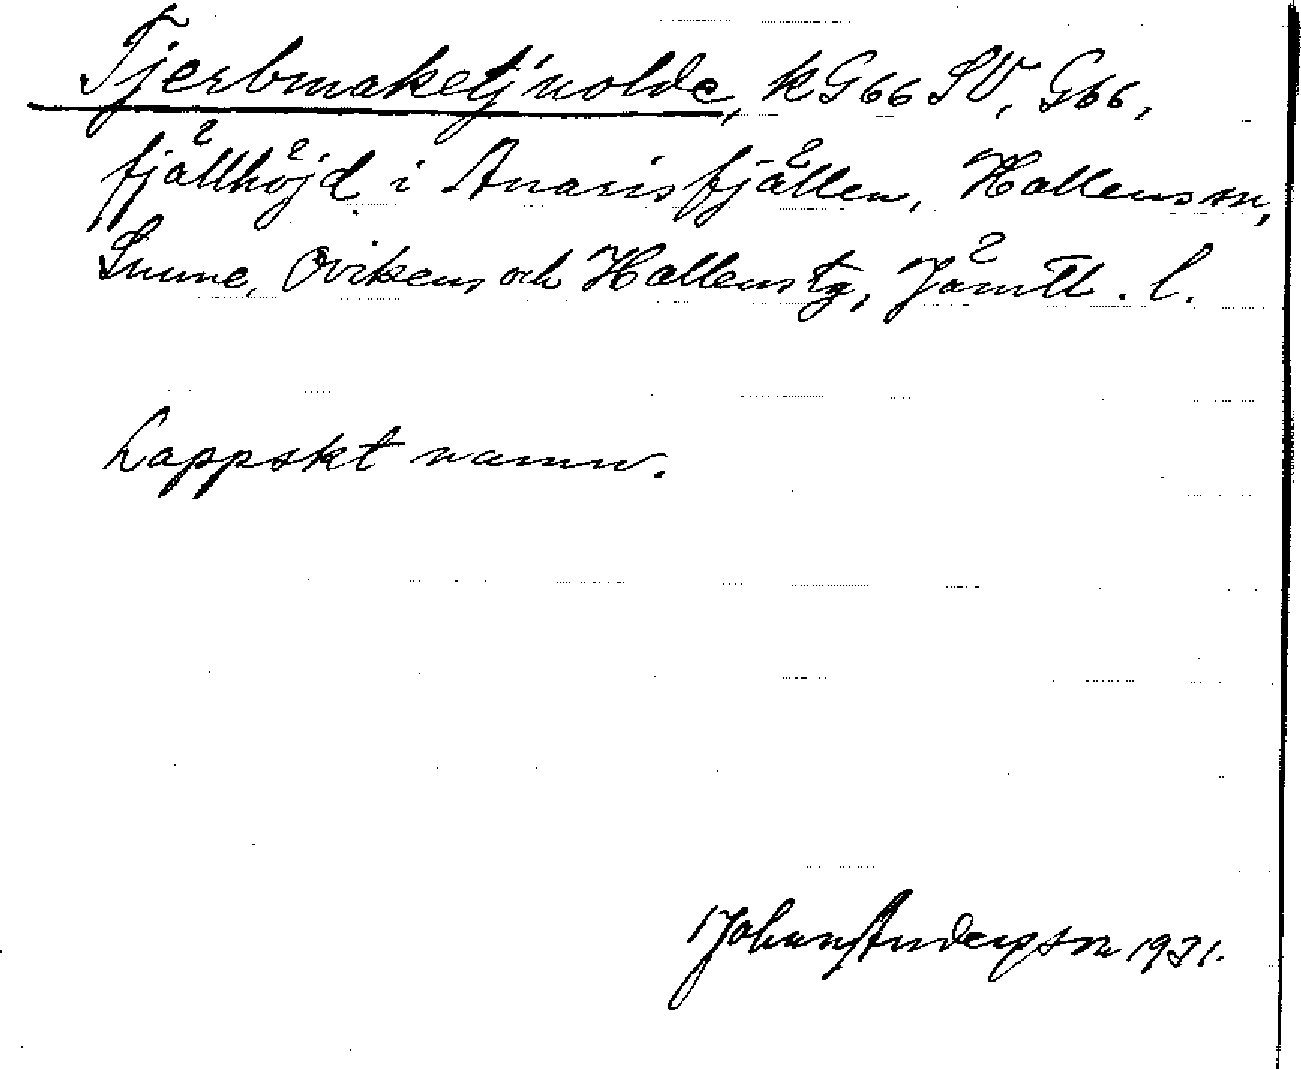 Tjerbmaketj'uolde, kG66SV, G66,
fjällhöjd i Anarisfjällen, Hallens sn,
Sunne, Ovikens och Hallens tg, Jämtl. l.
Lappskt namn.
Johan Anderson 1931.